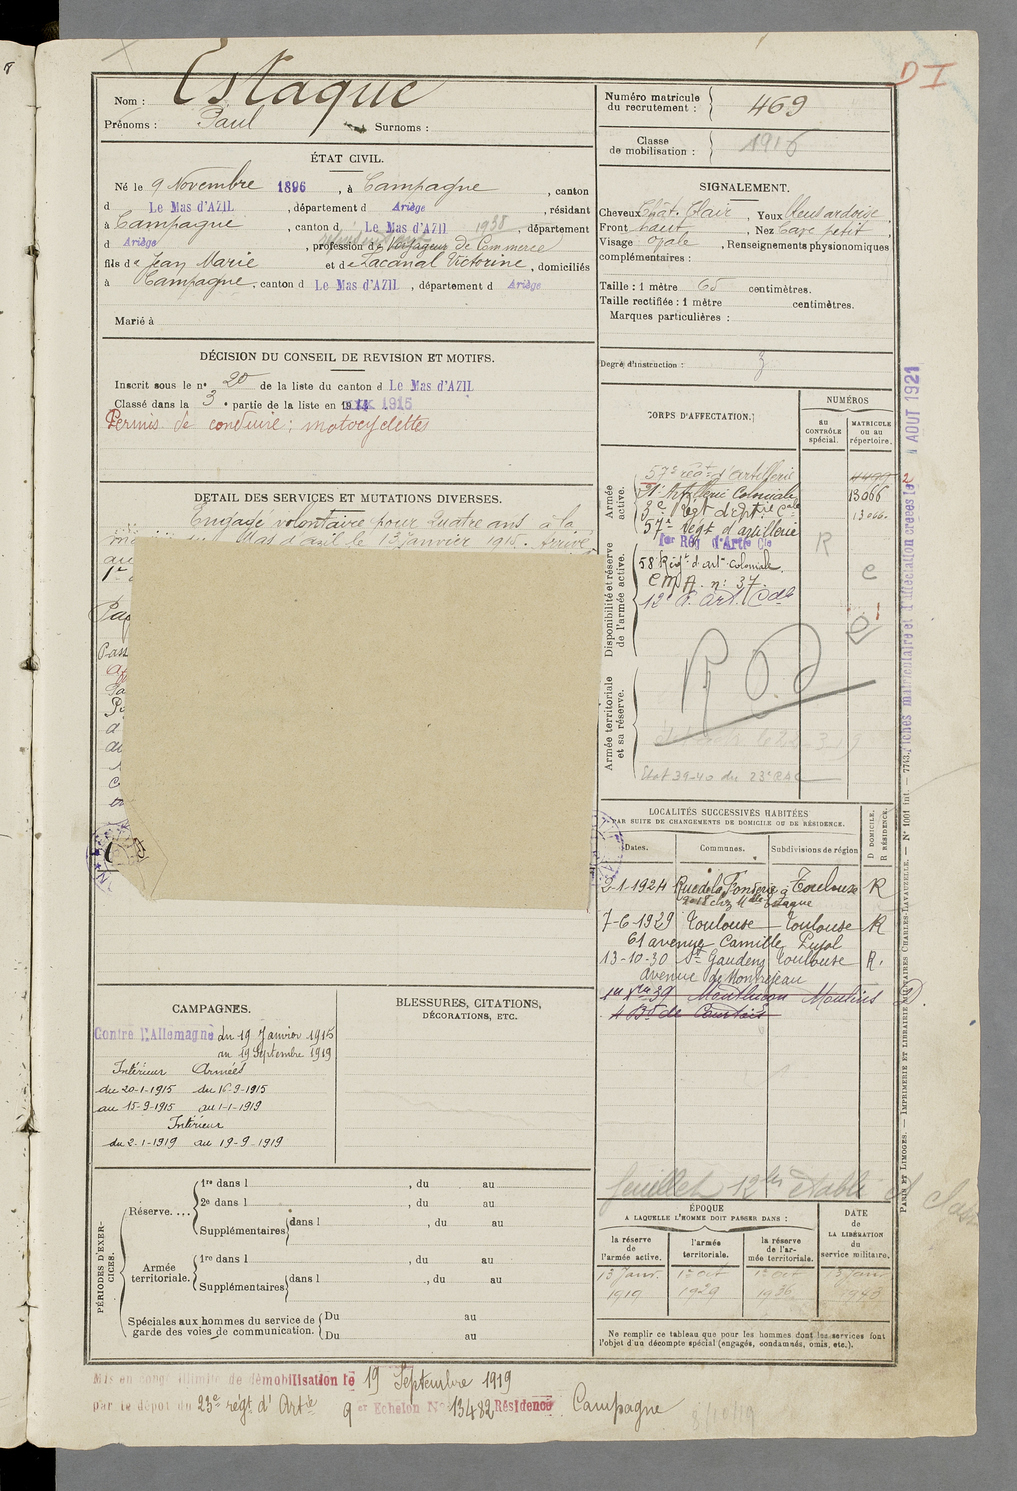 D I
Nom : Estaque
Prénoms : Paul Surnoms :
Numéro matricule du recrutement : 469
Classe de mobilisation : 1916
ÉTAT CIVIL.
Né le 9 Novembre 1896, à Campagne, canton
d Le Mas d'AZIL, département d Ariège, résidant
à Campagne, canton d Le Mas d'AZIL 1938, département
d Ariège, profession d voyageur de Commerce
fils de Jean Marie et de Lacanal Victorine, domiciliés
à Campagne, canton d Le Mas d'AZIL, département d Ariège
Marié à
SIGNALEMENT.
Cheveux Chât. Clair, Yeux bleus ardoise,
Front haut, Nez Cave petit,
Visage ovale, Renseignements physionomiques
complémentaires :
Taille : 1 mètre 65 centimètres.
Taille rectifiée : 1 mètre centimètres.
Marques particulières :
Degré d'instruction : 3
DÉCISION DU CONSEIL DE REVISION ET MOTIFS.
Inscrit sous le n° 20 de la liste du canton d Le Mas d'AZIL
Classé dans la 3e partie de la liste en 1915
Permis de conduire : motocyclettes
DETAIL DES SERVICES ET MUTATIONS DIVERSES.
Engagé volontaire pour quatre ans à la
Mas d'azil le 13 Janvier 1915. Arrivé
au
Pass
CORPS D'AFFECTATION.
NUMÉROS
au CONTRÔLE spécial.
MATRICULE ou au répertoire.
Armée active.
57e régt d'Artillerie 4499
21e Artillerie Coloniale 13066
3e Regt d'Artie Cale 13066
57e Regt d'artillerie
1er Rég d'Artie Cle
Disponibilité et réserve de l'armée active.
58 Régt d'art coloniale.
C M A. n: 37.
12e R. art. Cole
R
e
Armée territoriale et sa réserve.
R. O.
Etat 39-40 du 23e RAC
Fiches matriculaire et d'affectation créées le 1 AOUT 1921
LOCALITÉS SUCCESSIVES HABITÉES
PAR SUITE DE CHANGEMENTS DE DOMICILE OU DE RÉSIDENCE.
D DOMICILE. R RÉSIDENCE.
Dates. Communes. Subdivisions de région
2-1-1924 Rue de la Fonderie à Toulouse R
no 18 chez Mlle Estaque
7-6-1929 Toulouse Toulouse R
61 avenue Camille Pujol
13-10-30 St Gaudens Toulouse R.
avenue de Montréjeau
1er Xbre 39 Montluçon Moulins D
4 Bd de Courtais
CAMPAGNES.
Contre l'Allemagne du 19 Janvier 1915
au 19 Septembre 1919
Intérieur Armées
du 20-1-1915 du 16-9-1915
au 15-9-1915 au 1-1-1919
Intérieur
du 2-1-1919 au 19-9-1919
BLESSURES, CITATIONS,
DÉCORATIONS, ETC.
feuillet 12bis établi
PÉRIODES D'EXERCICES.
Réserve....
1re dans l , du au
2e dans l , du au
Supplémentaires dans l , du au
Armée territoriale.
1re dans l , du au
Supplémentaires dans l , du au
Spéciales aux hommes du service de garde des voies de communication.
Du au
Du au
ÉPOQUE
A LAQUELLE L'HOMME DOIT PASSER DANS :
la réserve de l'armée active.
l'armée territoriale.
la réserve de l'armée territoriale.
DATE de LA LIBÉRATION du service militaire.
13 Janv. 1919
13 oct 1929
13 oct 1936
13 Janv 1943
Ne remplir ce tableau que pour les hommes dont les services font
l'objet d'un décompte spécial (engagés, condamnés, omis, etc.).
PARIS ET LIMOGES. — IMPRIMERIE ET LIBRAIRIE MILITAIRES CHARLES-LAVAUZELLE. — N° 1001 int. — 7743.
Mis en congé illimité de démobilisation le 19 Septembre 1919
par le dépôt du 23e régt d'Artie 9 er Echelon N° 13482 Résidence Campagne
8/10/19